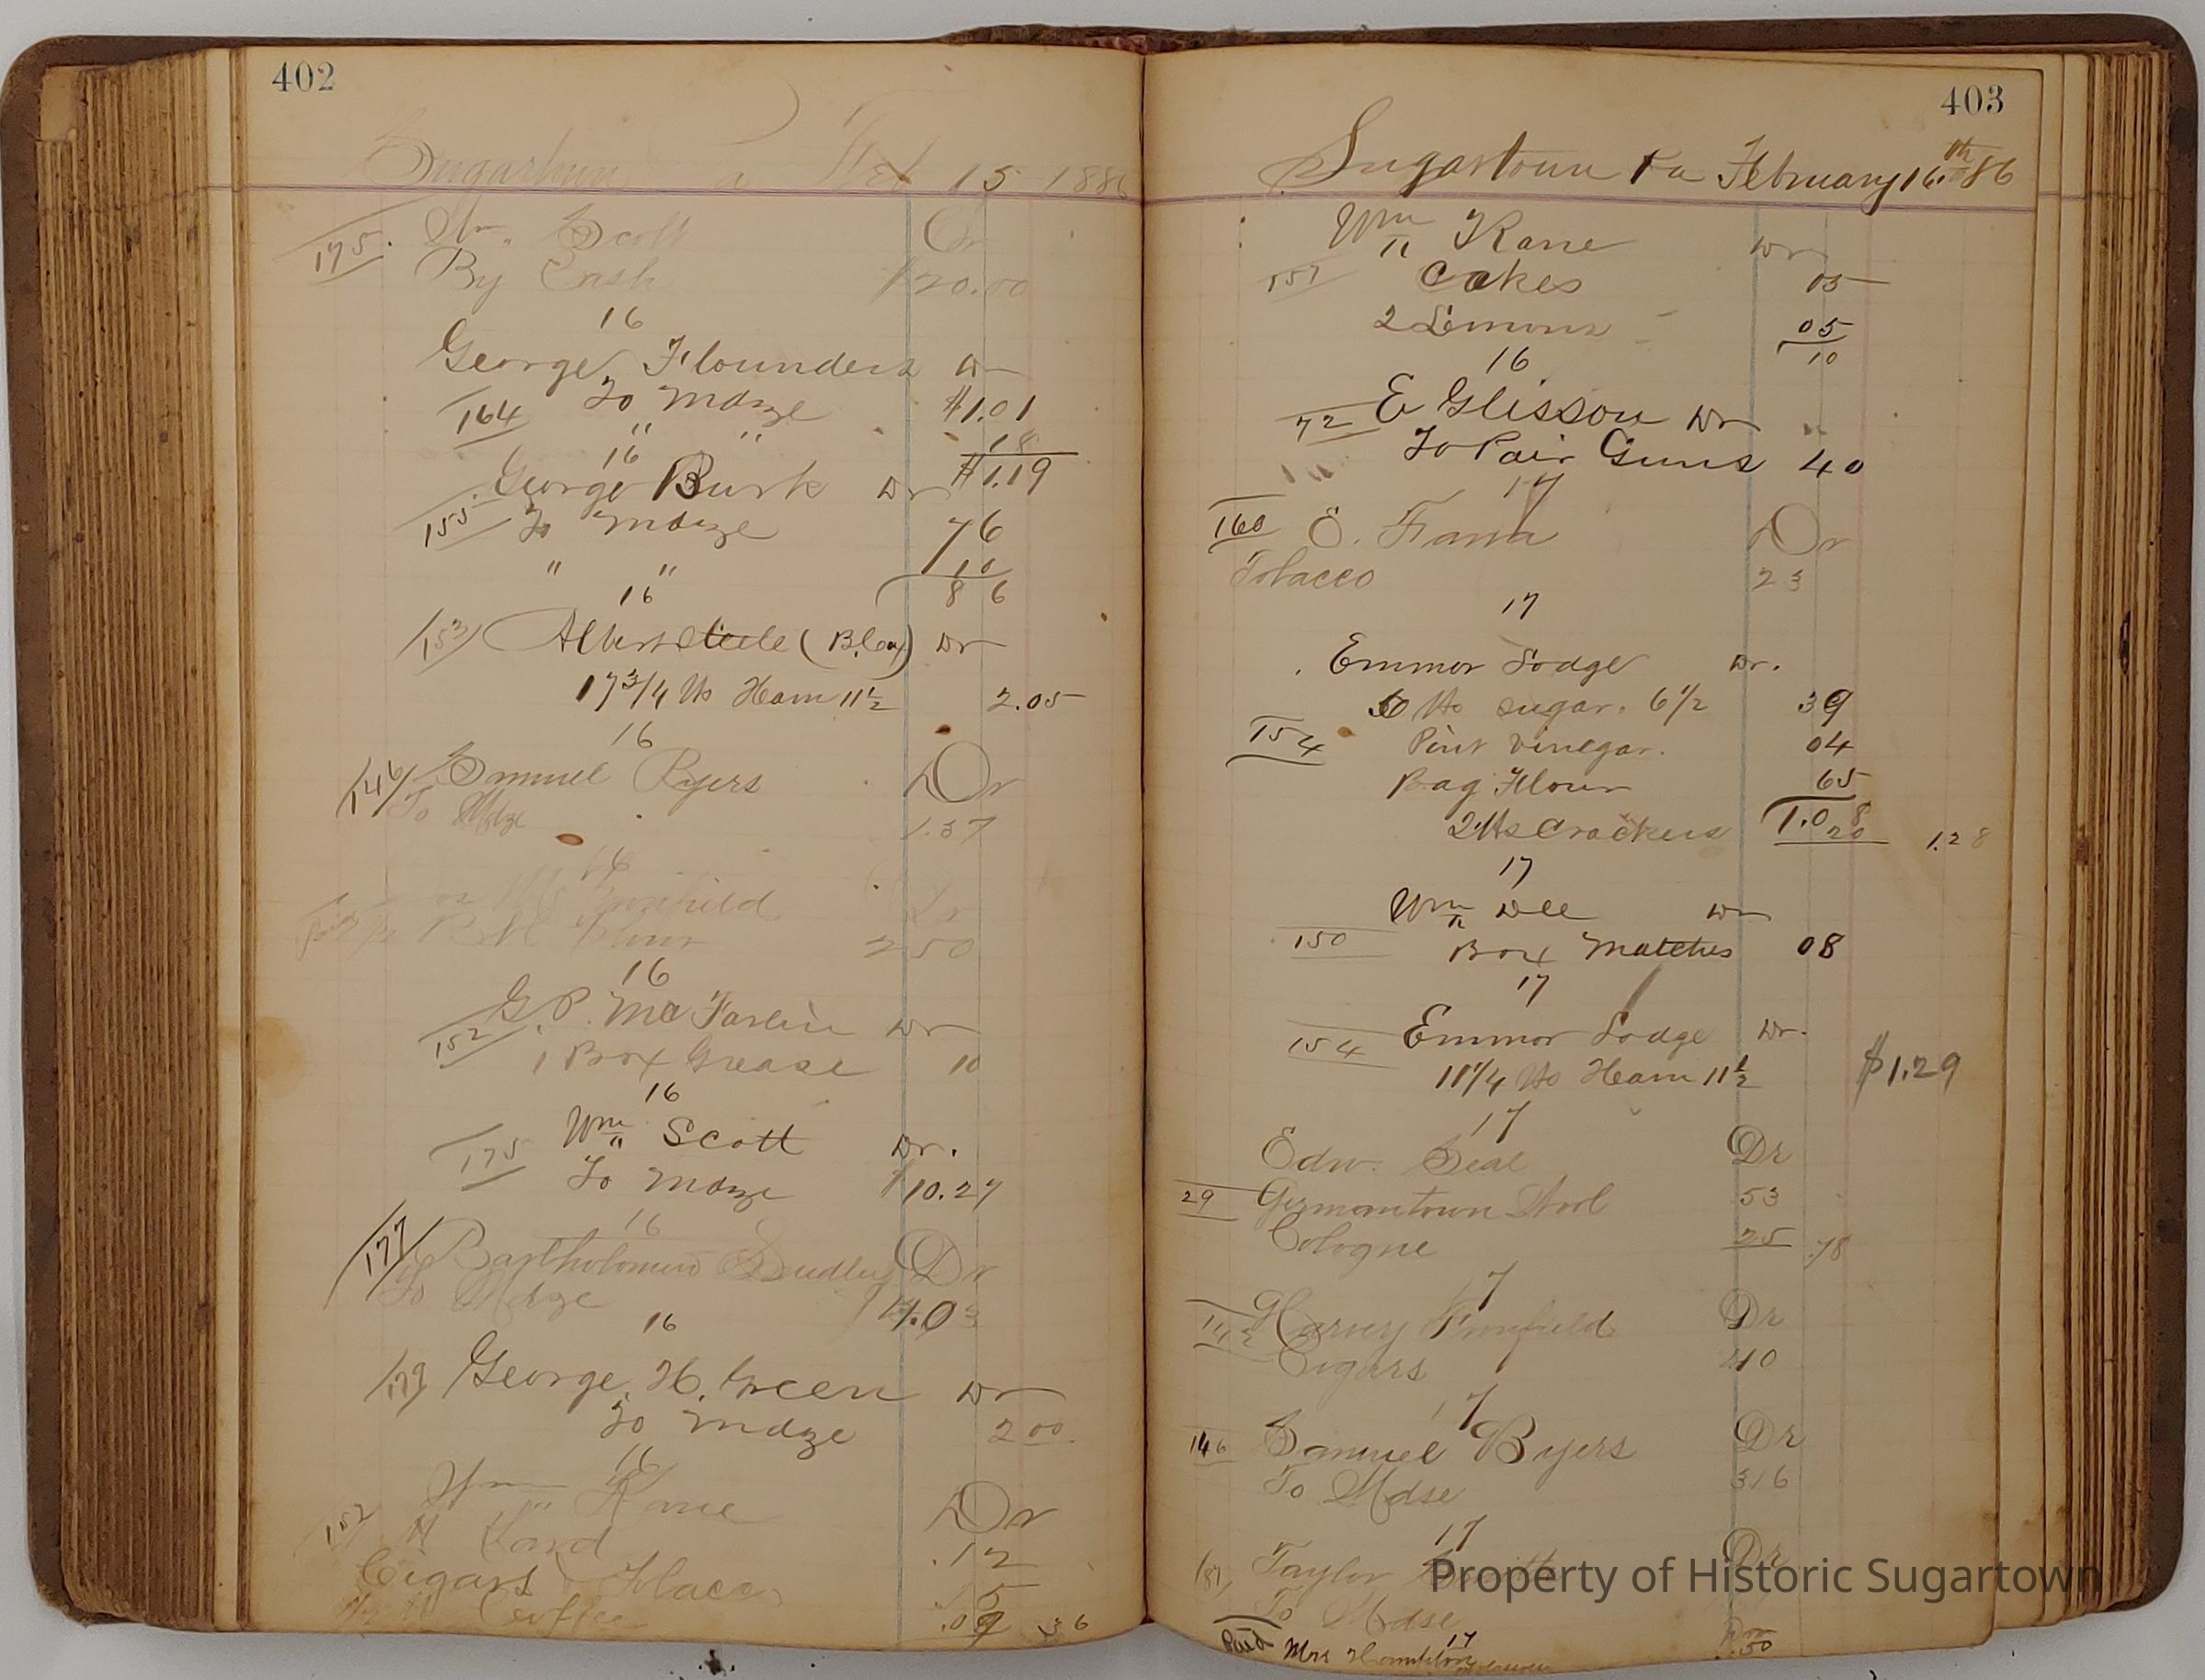 402
Sugartown Pa Feb 15 1886
175. Wm. Scott Cr
By Cash $20.00
16
George Flounders Dr
164 To Mdze $1.01
" " 18
16 $1.19
George Burk Dr
155 To Mdze 76
" " 10
16 86
153 Albert Steele (B.) Dr
17 3/4 lbs Ham 11½ 2.05
16
146 Samuel Byers Dr
To Mdze 1.37
16
Dr
2 50
16
G. P. McFarlin Dr
152 1 Box Grease 10
16
175 Wm Scott Dr.
To Mdze $10.27
16
177 Bartholomew Dudley Dr
To Mdze 4.03
16
179 George H. Green Dr
To Mdze 2 00
16
Wm Kane Dr
152 # Lard .12
Cigars & Tobacco 15
Coffee .09 36
403
Sugartown Pa February 16th 86
Wm Kane Dr
157 Cakes 05
2 Lemons 05
16 10
72 E Glisson Dr
To Pair Gums 40
17
160 E. Dr
Tobacco 23
17
Emmor Lodge Dr.
6 lbs sugar. 6½ 39
154 Pint Vinegar. 04
Bag Flour 65
1.08
2 lbs Crackers 20 1.28
17
Wm Dee Dr
150 Box Matches 08
17
154 Emmor Lodge Dr.
11¼ lbs Ham 11½ $1.29
17
Edw. Seal Dr
29 Germantown Wool 53
Cologne 25 .78
17
142 Harvey Dr
Cigars 40
17
146 Samuel Byers Dr
To Mdse 316
17
Taylor Smith Dr
To Mdse
17
Paid Mrs Hamilton .50
Property of Historic Sugartown